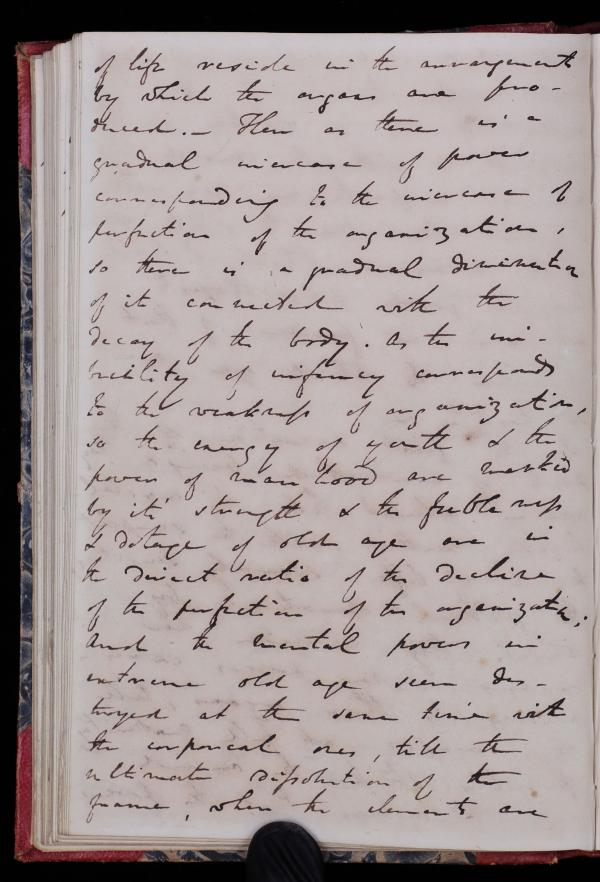 of life reside in the arrangements
by which the organs are pro-
duced. — Then as there is a
gradual increase of power
corresponding to the increase of
perfection of the organization,
so there is a gradual diminution
of it connected with the
decay of the body. As the im-
becility of infancy corresponds
to the weakness of organization,
so the energy of youth & the
power of manhood are marked
by it's strength & the feebleness
& dotage of old age are in
the direct ratio of the decline
of the perfection of the organization;
And the mental powers in
extreme old age seem des-
troyed at the same time with
the corporeal ones, till the
ultimate dissolution of the
frame, when the elements are